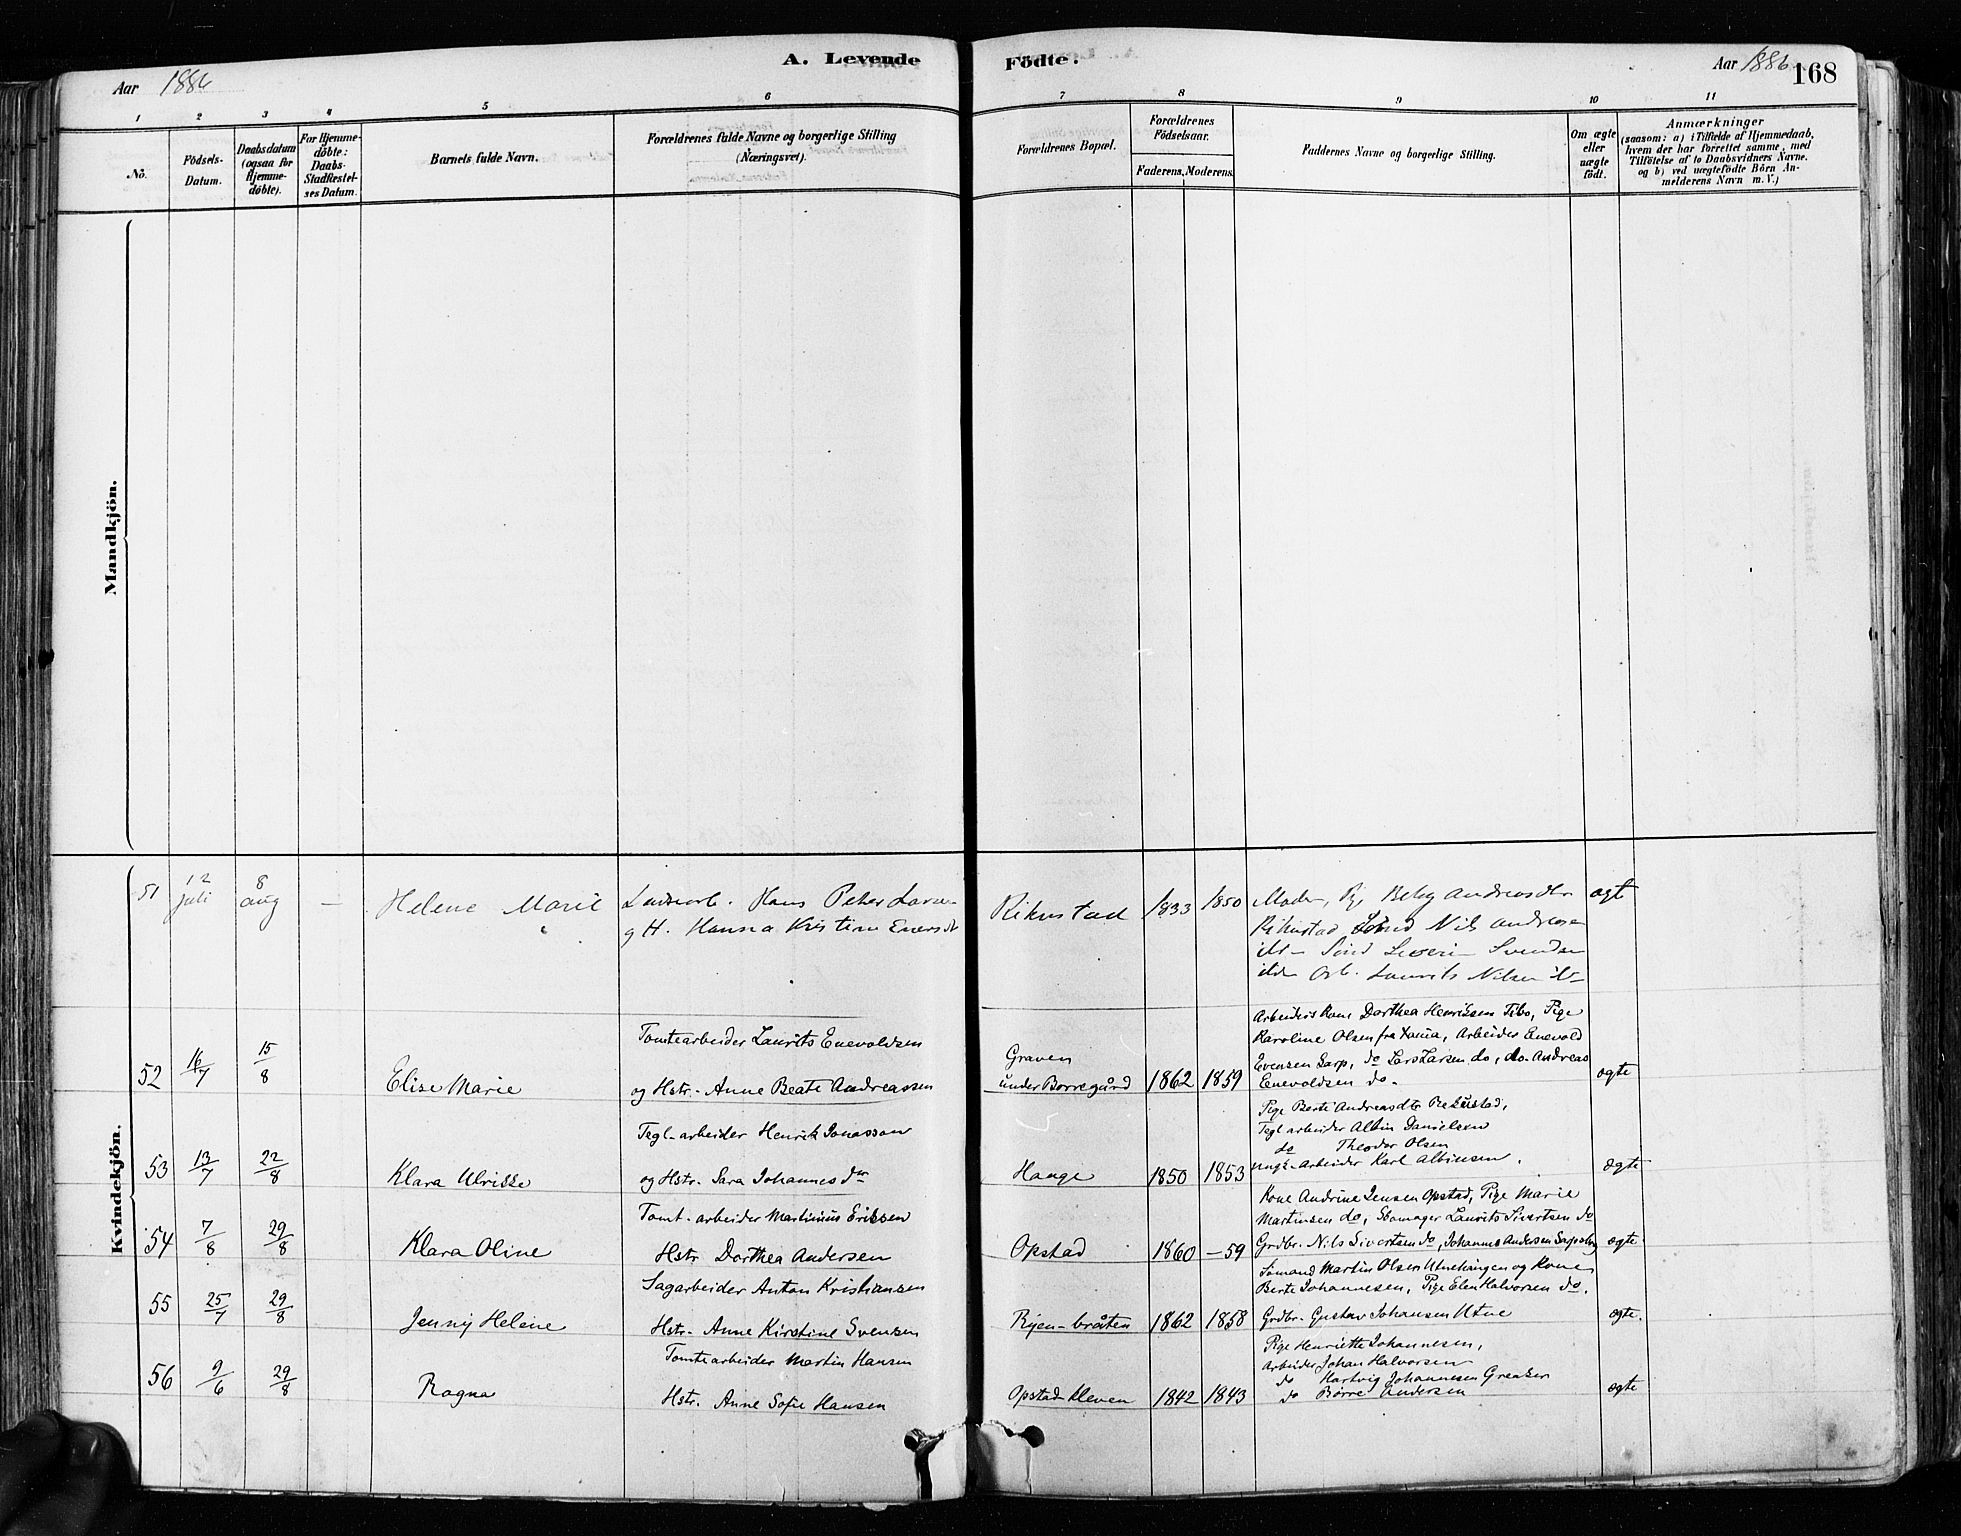 A. Levende Födte.
Aar 1886
Aar 1886 168
1 2 3 4 5 6 7 8 9 10 11
No.
Födsels-
Datum.
Daabsdatum
(ogsaa for
Hjemme-
döbte).
For Hjemme-
döbte:
Daabs-
Stadfæstel-
ses Datum.
Barnets fulde Navn.
Forældrenes fulde Navne og borgerlige Stilling
(Næringsvei).
Forældrenes Bopæl.
Forældrenes
Födselsaar.
Faderens. Moderens.
Faddernes Navne og borgerlige Stilling.
Om ægte
eller
uægte
födt.
Anmærkninger
(saasom: a) i Tilfælde af Hjemmedaab,
hvem der har forrettet samme, med
Tilföielse af to Daabsvidners Navne.
og b) ved uægtefödte Börn An-
melderens Navn m. V.)
Mandkjön.
Kvindekjön.
51 12 juli 8 aug — Helene Marie
Hans Peter Larsen
og H. Hanna Kristine
Rikustad 1833 1850
Moder, Pg. Andreasdtr
Rikustad Nils Andreasen
Svendsen
Laurits Nilsen
ægte
52 16/7 15/8 Elise Marie
Tomtearbeider Laurits Enevoldsen
og Hstr. Anne Beate Andreassen
Graven
under Borregård 1862 1859
Arbeiders Kone Dorthea Henriksen Tibo, Pige
Karoline Olsen fra Tomta, Arbeider Enevold
Evensen Sarp, do Lars Larsen do, do. Andreas
Enevoldsen do.
ægte
53 13/7 22/8 Klara Ulrikke
Tegl-arbeider Henrik Jonasson
og Hstr. Sara Johannesdtr
Hauge 1850 1853
Pige Berte Andreasdtr Rekustad,
Tegl arbeider Albin Danielsen
do Theodor Olsen
ungk. Arbeider Karl Albinsen.
ægte
54 7/8 29/8 Klara Oline
Tomt-arbeider Martinius Eriksen
Hstr. Dorthea Andersen
Opstad 1860 —59
Kone Andrine Jensen Opstad, Pige Marie
Martinsen do, Skomager Laurits Sivertsen do
Grdbr. Nils Sivertsen do, Johannes Andersen Sapsborg
ægte
55 25/7 29/8 Jenny Helene
Sagarbeider Anton Kristiansen
Hstr. Anne Kirstine Svensen
Ryen-bråten 1862 1858
Sömand Martin Olsen Utnehaugen og Kone
Berte Johannesen, Pige Elen Halvorsen do.
Grdbr. Gustav Johansen Utne
ægte.
56 9/6 29/8 Ragna
Tomtearbeider Martin Hansen
Hstr. Anne Sofie Hansen
Opstad kleven 1842 1843
Pige Henriette Johannesen,
Arbeider Johan Halvorsen
do Hartvig Johannesen Greaker
do Börre Andersen
ægte